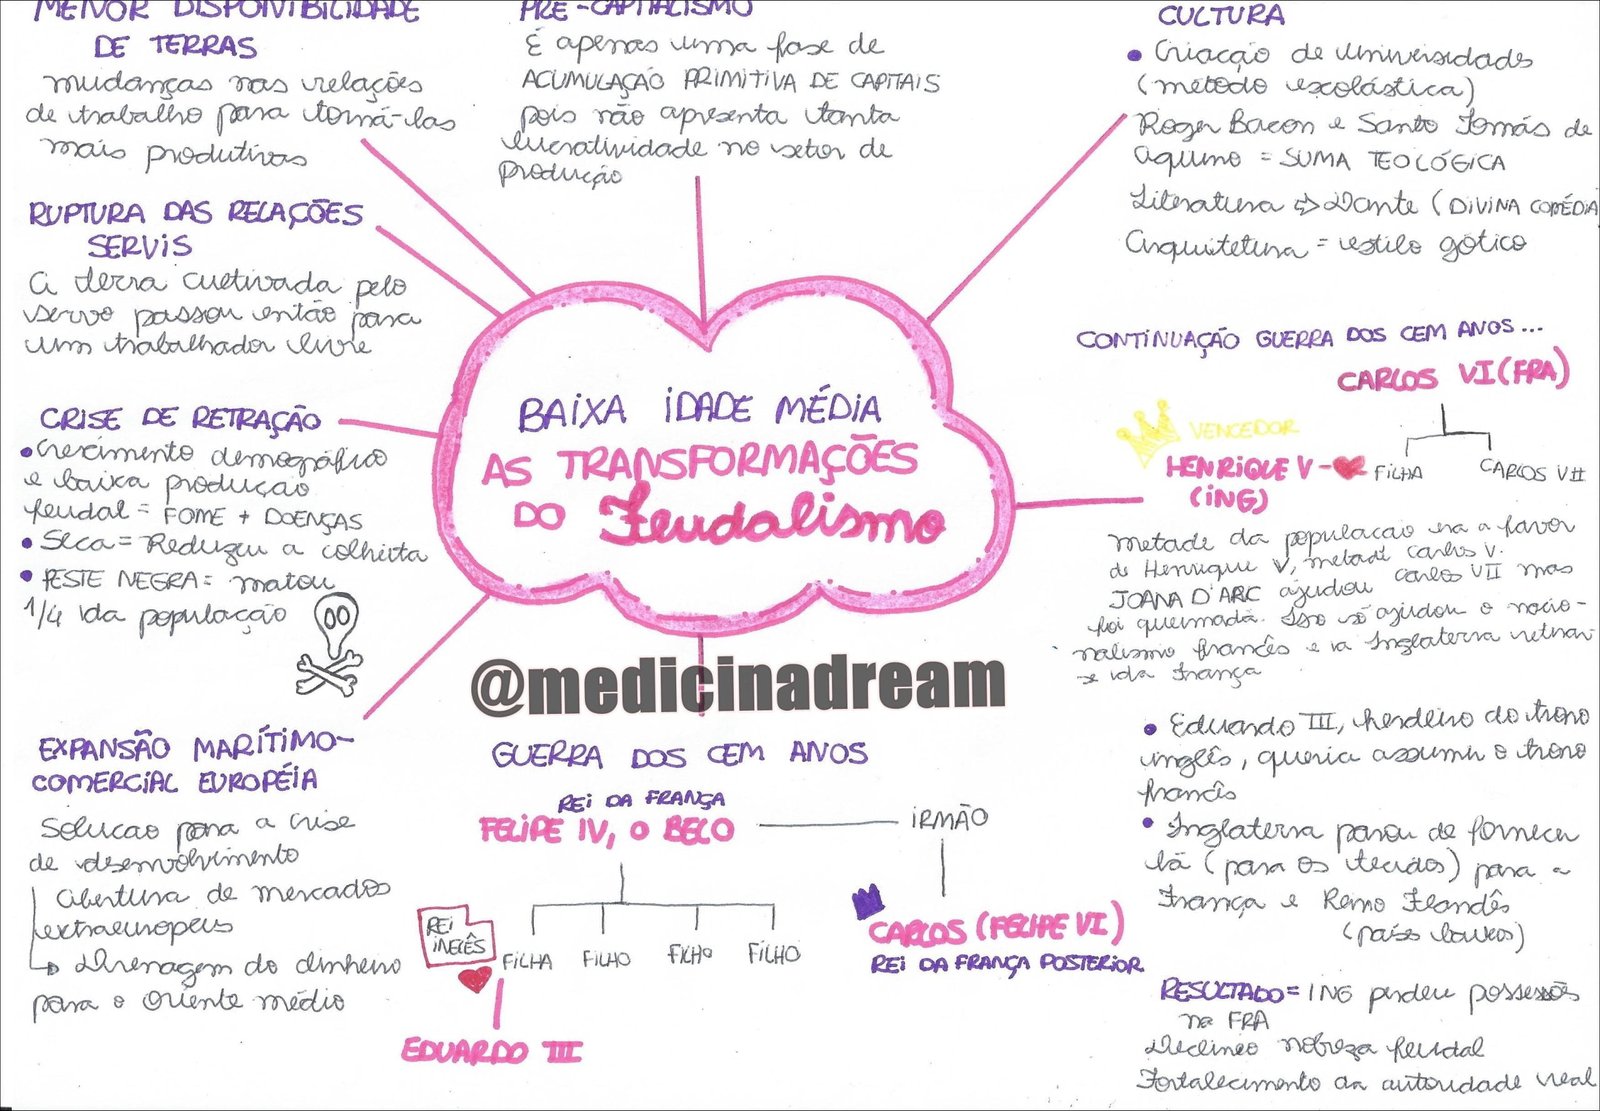 MENOR DISPONIBILIDADE
DE TERRAS
mudanças nas relações
de trabalho para torná-las
mais produtivas
RUPTURA DAS RELAÇÕES
SERVIS
A terra cultivada pelo
servo passou então para
um trabalhador livre
CRISE DE RETRAÇÃO
• Crescimento demográfico
e baixa produção
feudal = FOME + DOENÇAS
• Seca = Reduziu a colheita
• PESTE NEGRA = matou
1/4 da população
EXPANSÃO MARÍTIMO-
COMERCIAL EUROPÉIA
Solucao para a crise
de desenvolvimento
Abertura de mercados
extraeuropeus
Drenagem do dinheiro
para o Oriente médio
PRÉ-CAPITALISMO
É apenas uma fase de
ACUMULAÇÃO PRIMITIVA DE CAPITAIS
pois não apresenta tanta
lucratividade no setor de
produção
BAIXA IDADE MÉDIA
AS TRANSFORMAÇÕES
DO Feudalismo
@medicinadream
GUERRA DOS CEM ANOS
REI DA FRANÇA
FELIPE IV, O BELO
IRMÃO
REI
INGLÊS
FILHA FILHO FILHO FILHO
EDUARDO III
CARLOS (FELIPE VI)
REI DA FRANÇA POSTERIOR
CULTURA
• Criacção de universidades
(método escolástica)
Roger Bacon e Santo Tomás de
Aquino = SUMA TEOLÓGICA
Literatura ⇨ Dante (DIVINA COMÉDIA
Arquitetura = estilo gótico
CONTINUAÇÃO GUERRA DOS CEM ANOS...
CARLOS VI (FRA)
VENCEDOR
HENRIQUE V - FILHA CARLOS VII
(ING)
Metade da populacao era a favor
de Henrique V, metade Carlos V.
JOANA D'ARC ajudou Carlos VII mas
foi queimada. Isso só ajudou o nacio-
nalismo francês e a Inglaterra retirar-
se da França
• Eduardo III, herdeiro do trono
inglês, queria assumir o trono
francês
• Inglaterra parou de fornecer
lã (para os tecidos) para a
França e Reino Flandês
(países baixos)
RESULTADO = ING perdeu possessões
na FRA
Declíneo nobreza feudal
Fortalecimento da autoridade real